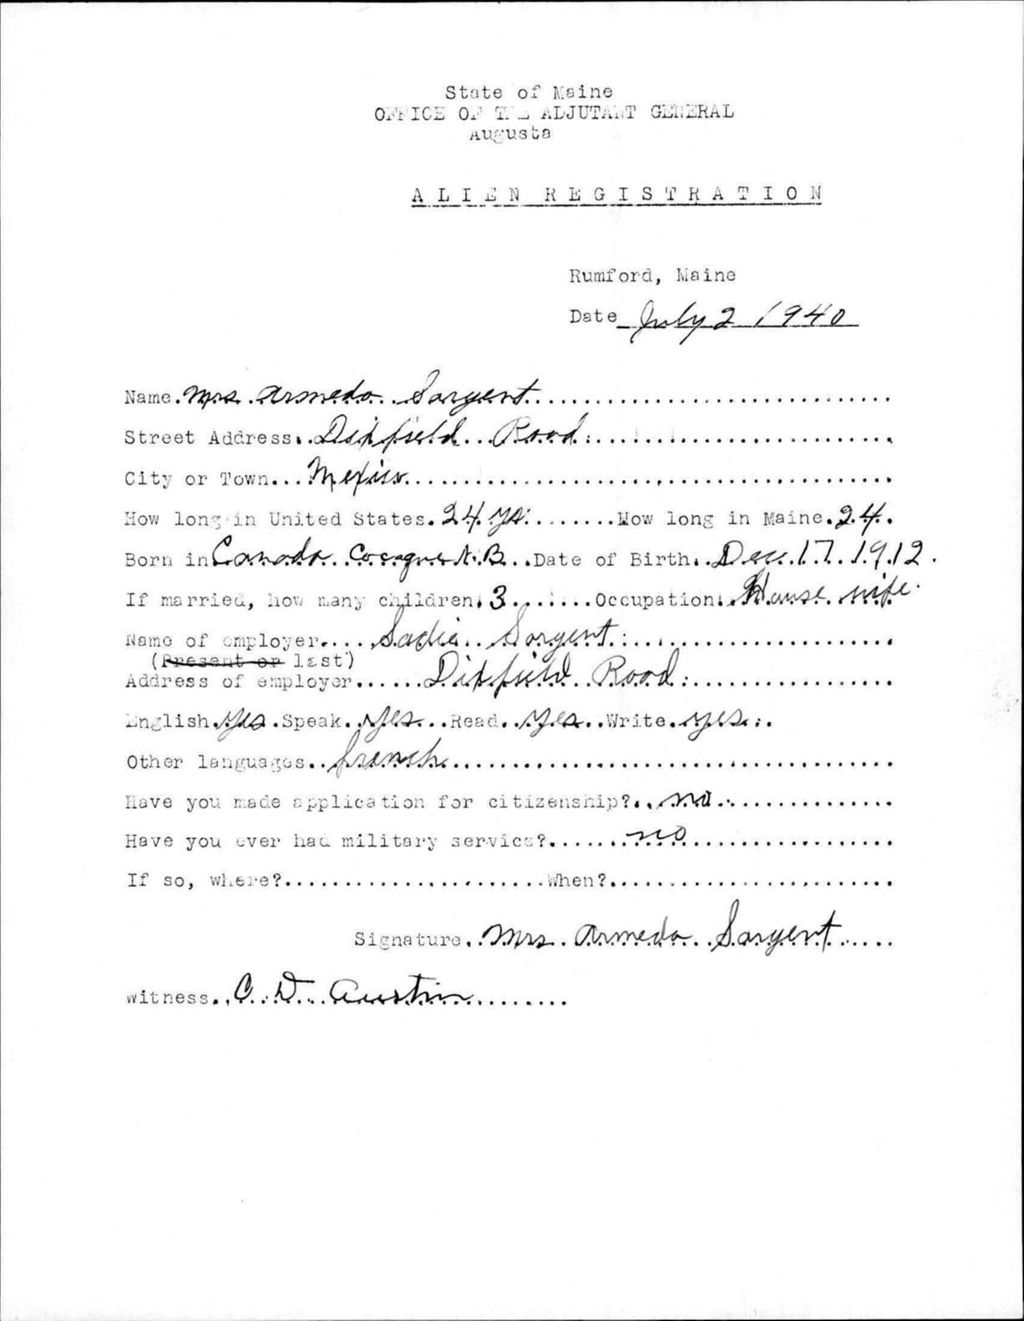 State of Maine
OFFICE OF THE ADJUTANT GENERAL
Augusta
ALIEN REGISTRATION
Rumford, Maine
Date July 2 1940
Name. Mrs. Armeda Sargent
Street Address. Dixfield Road.
City or Town... Mexico
How long in United States. 24 yrs. How long in Maine. 24.
Born in Canada. Cocagne N.B. Date of Birth. Dec. 17. 1912.
If married, how many children. 3 Occupation. House wife.
Name of employer.... Sadie Sargent.
(Present or last)
Address of employer...... Dixfield Road.
English. Yes. Speak. Yes. Read. Yes. Write. Yes.
Other languages.. french
Have you made application for citizenship?.. no
Have you ever had military service?....... no
If so, where?......................When?........................
Signature.. Mrs. Armeda Sargent
Witness.. C. D. Austin